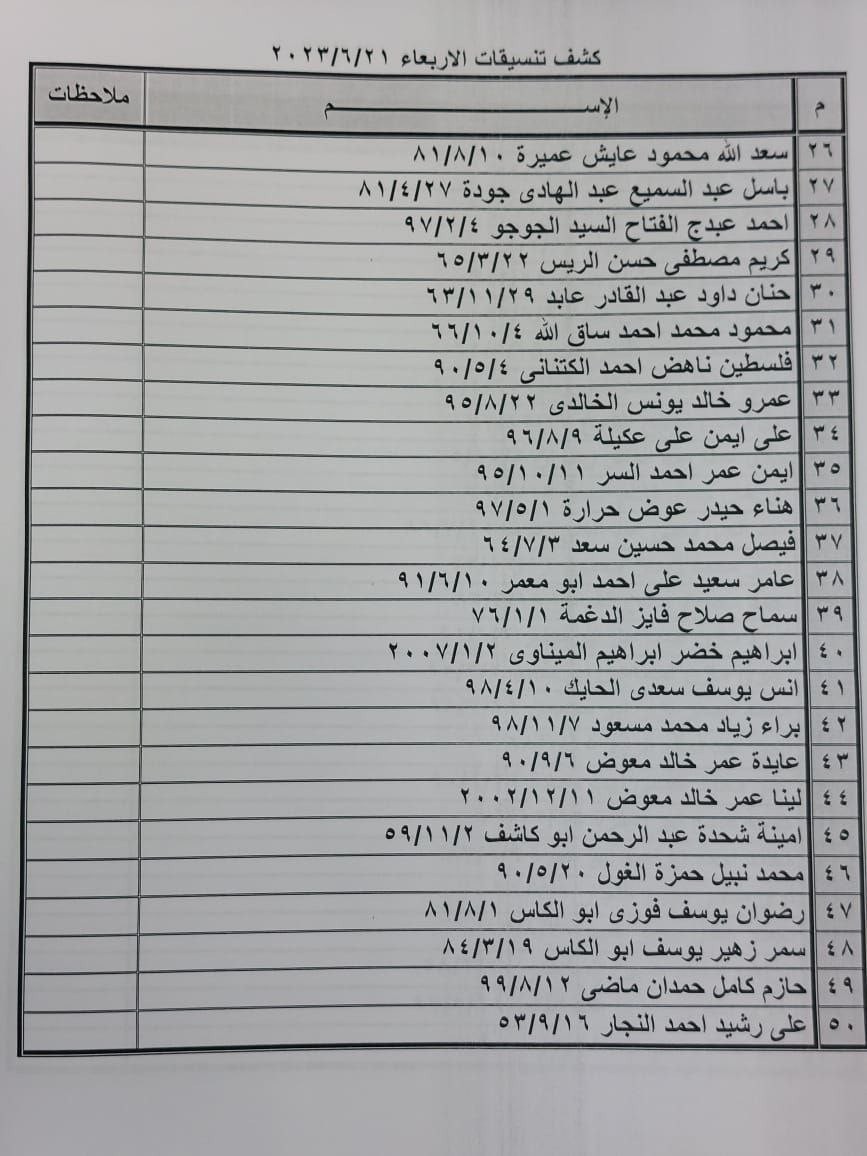 كشف تنسيقات الاربعاء ٢٠٢٣/٦/٢١
م الإســـــم ملاحظات
٢٦ سعد الله محمود عايش عميرة ٨١/٨/١٠
٢٧ باسل عبد السميع عبد الهادى جودة ٨١/٤/٢٧
٢٨ احمد عبدج الفتاح السيد الجوجو ٩٧/٢/٤
٢٩ كريم مصطفى حسن الريس ٦٥/٣/٢٢
٣٠ حنان داود عبد القادر عابد ٦٣/١١/٢٩
٣١ محمود محمد احمد ساق الله ٦٦/١٠/٤
٣٢ فلسطين ناهض احمد الكتنانى ٩٠/٥/٤
٣٣ عمرو خالد يونس الخالدى ٩٥/٨/٢٢
٣٤ على ايمن على عكيلة ٩٦/٨/٩
٣٥ ايمن عمر احمد السر ٩٥/١٠/١١
٣٦ هناء حيدر عوض حرارة ٩٧/٥/١
٣٧ فيصل محمد حسين سعد ٦٤/٧/٣
٣٨ عامر سعيد على احمد ابو معمر ٩١/٦/١٠
٣٩ سماح صلاح فايز الدغمة ٧٦/١/١
٤٠ ابراهيم خضر ابراهيم الميناوى ٢٠٠٧/١/٢
٤١ انس يوسف سعدى الحايك ٩٨/٤/١٠
٤٢ براء زياد محمد مسعود ٩٨/١١/٧
٤٣ عايدة عمر خالد معوض ٩٠/٩/٦
٤٤ لينا عمر خالد معوض ٢٠٠٢/١٢/١١
٤٥ امينة شحدة عبد الرحمن ابو كاشف ٥٩/١١/٢
٤٦ محمد نبيل حمزة الغول ٩٠/٥/٢٠
٤٧ رضوان يوسف فوزى ابو الكاس ٨١/٨/١
٤٨ سمر زهير يوسف ابو الكاس ٨٤/٣/١٩
٤٩ حازم كامل حمدان ماضى ٩٩/٨/١٢
٥٠ على رشيد احمد النجار ٥٣/٩/١٦